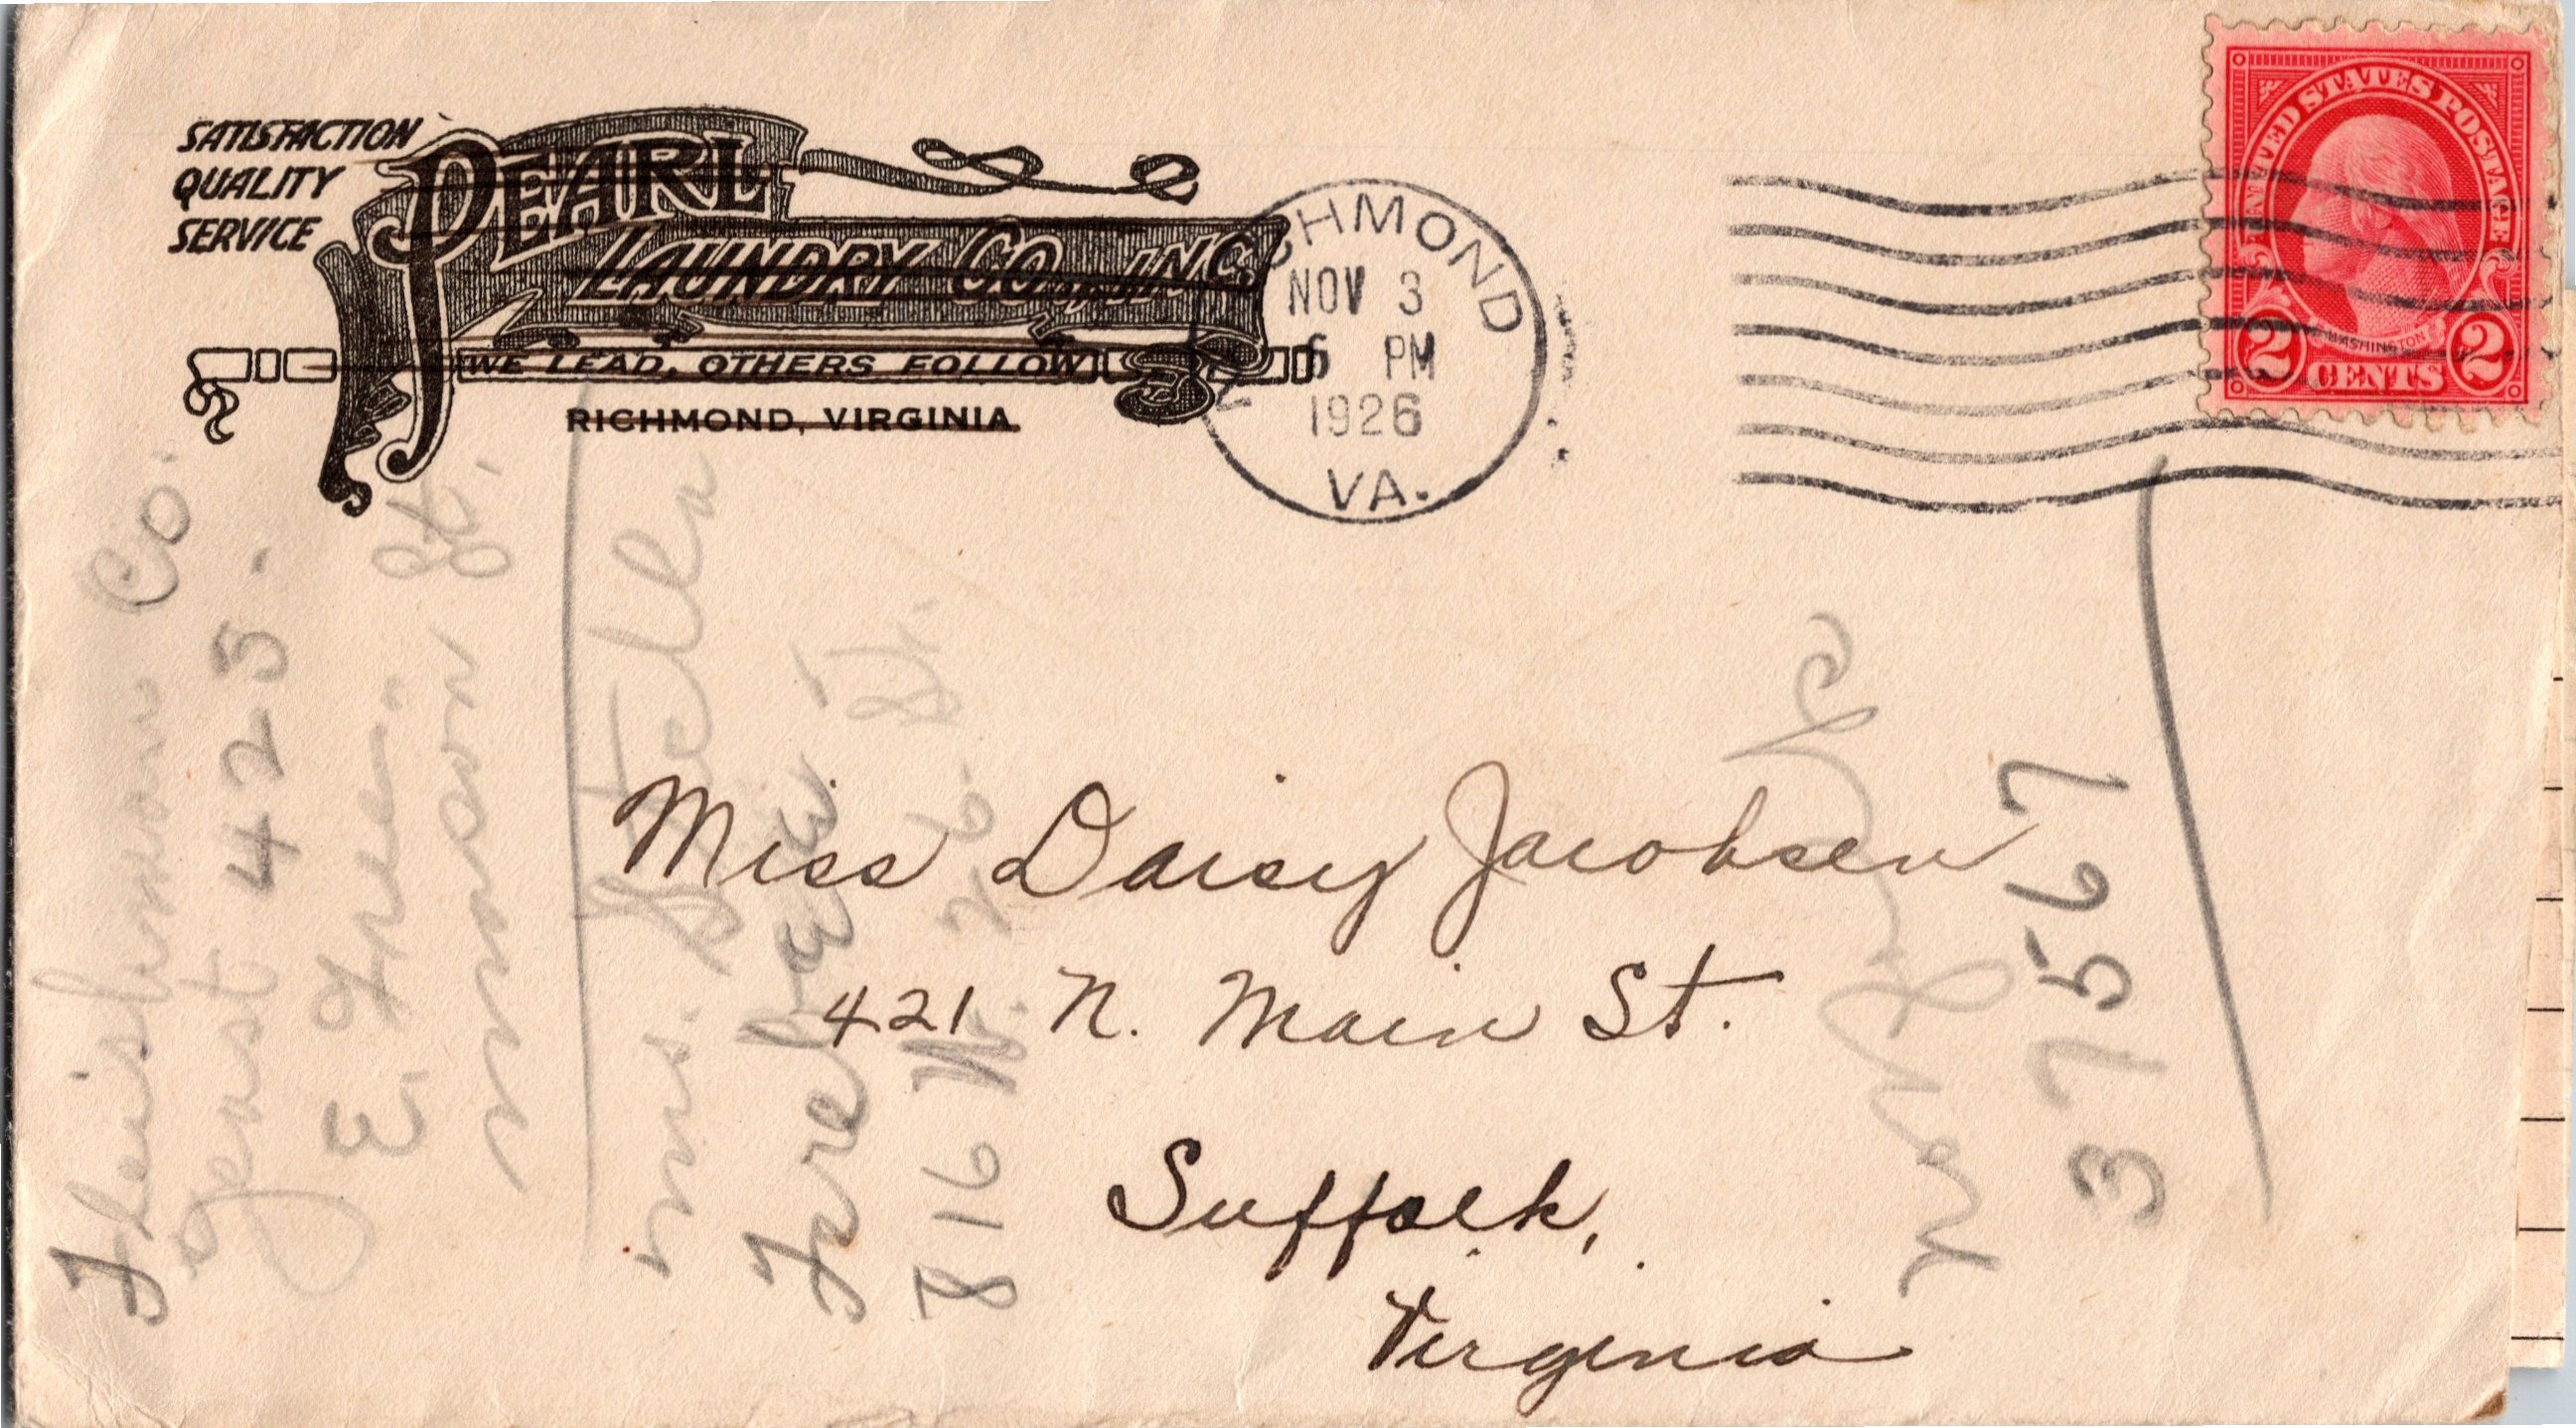 SATISFACTION
QUALITY
SERVICE
PEARL
LAUNDRY CO., INC.
WE LEAD, OTHERS FOLLOW
RICHMOND, VIRGINIA
RICHMOND
NOV 3
6 PM
1926
VA.
UNITED STATES POSTAGE
WASHINGTON
2 CENTS 2
Miss Daisy Jacobsen
421 N. Main St.
Suffolk,
Virginia
Co.
Yeast 425.
E.
St.
Mrs. Helen
816 W. 26 St.
Norfolk Va
37567